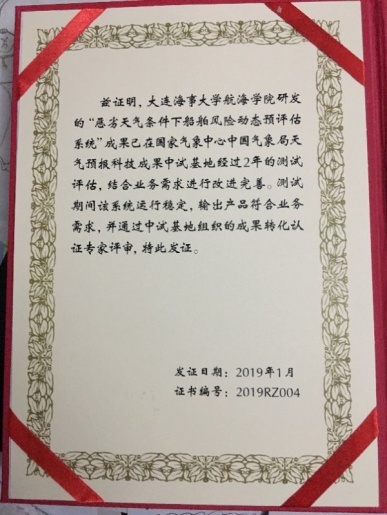 兹证明，大连海事大学航海学院研发
的“恶劣天气条件下船舶风险动态预评估
系统”成果已在国家气象中心中国气象局天
气预报科技成果中试基地经过2年的测试
评估，结合业务需求进行改进完善。测试
期间该系统运行稳定，输出产品符合业务
需求，并通过中试基地组织的成果转化认
证专家评审，特此发证。
发证日期：2019年1月
证书编号：2019RZ004